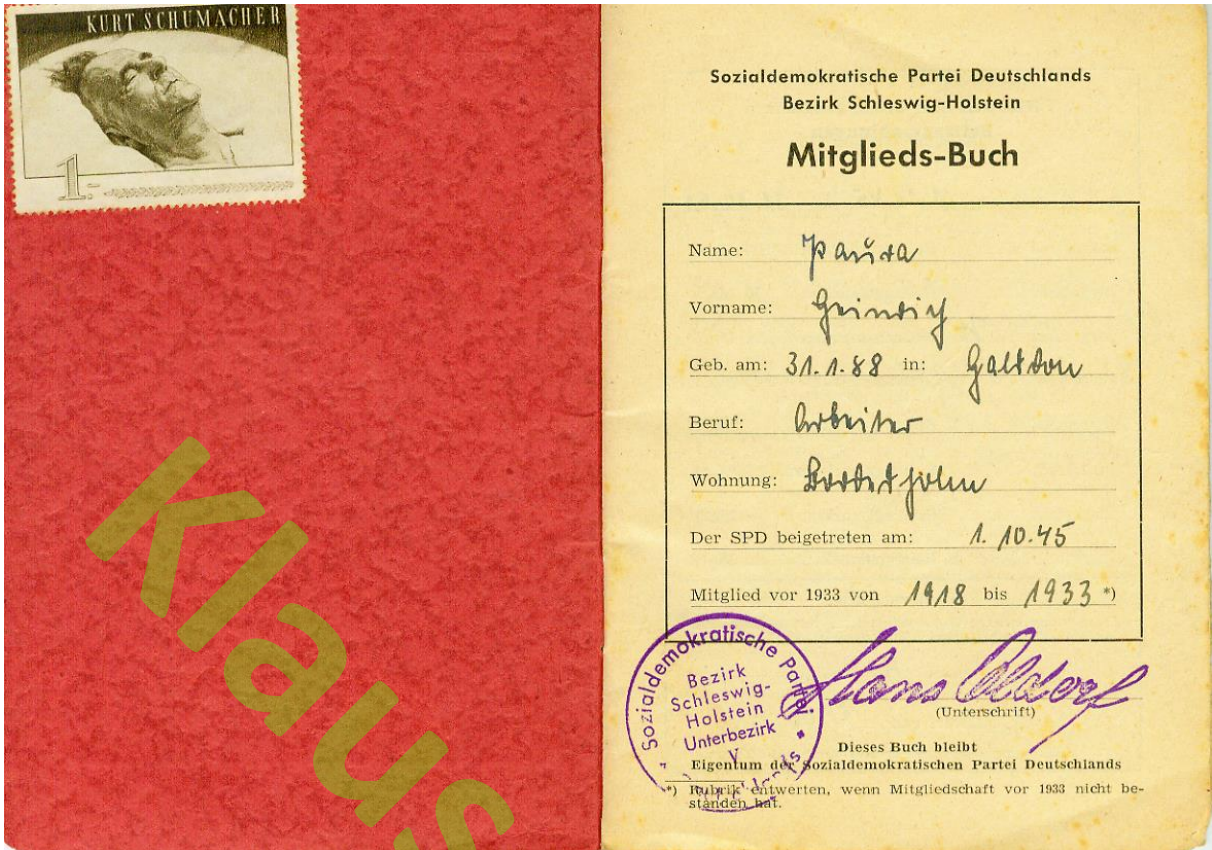 KURT SCHUMACHER
1.-
Klaus
Sozialdemokratische Partei Deutschlands
Bezirk Schleswig-Holstein
Mitglieds-Buch
Name: Paura
Vorname: Heinrich
Geb. am: 31.1.88 in:
Beruf: Arbeiter
Wohnung: Bordesholm
Der SPD beigetreten am: 1.10.45
Mitglied vor 1933 von 1918 bis 1933 *)
Sozialdemokratische Partei Deutschlands
Bezirk
Schleswig-
Holstein
Unterbezirk
V
Hans
(Unterschrift)
Dieses Buch bleibt
Eigentum der Sozialdemokratischen Partei Deutschlands
*) Rubrik entwerten, wenn Mitgliedschaft vor 1933 nicht be-
standen hat.